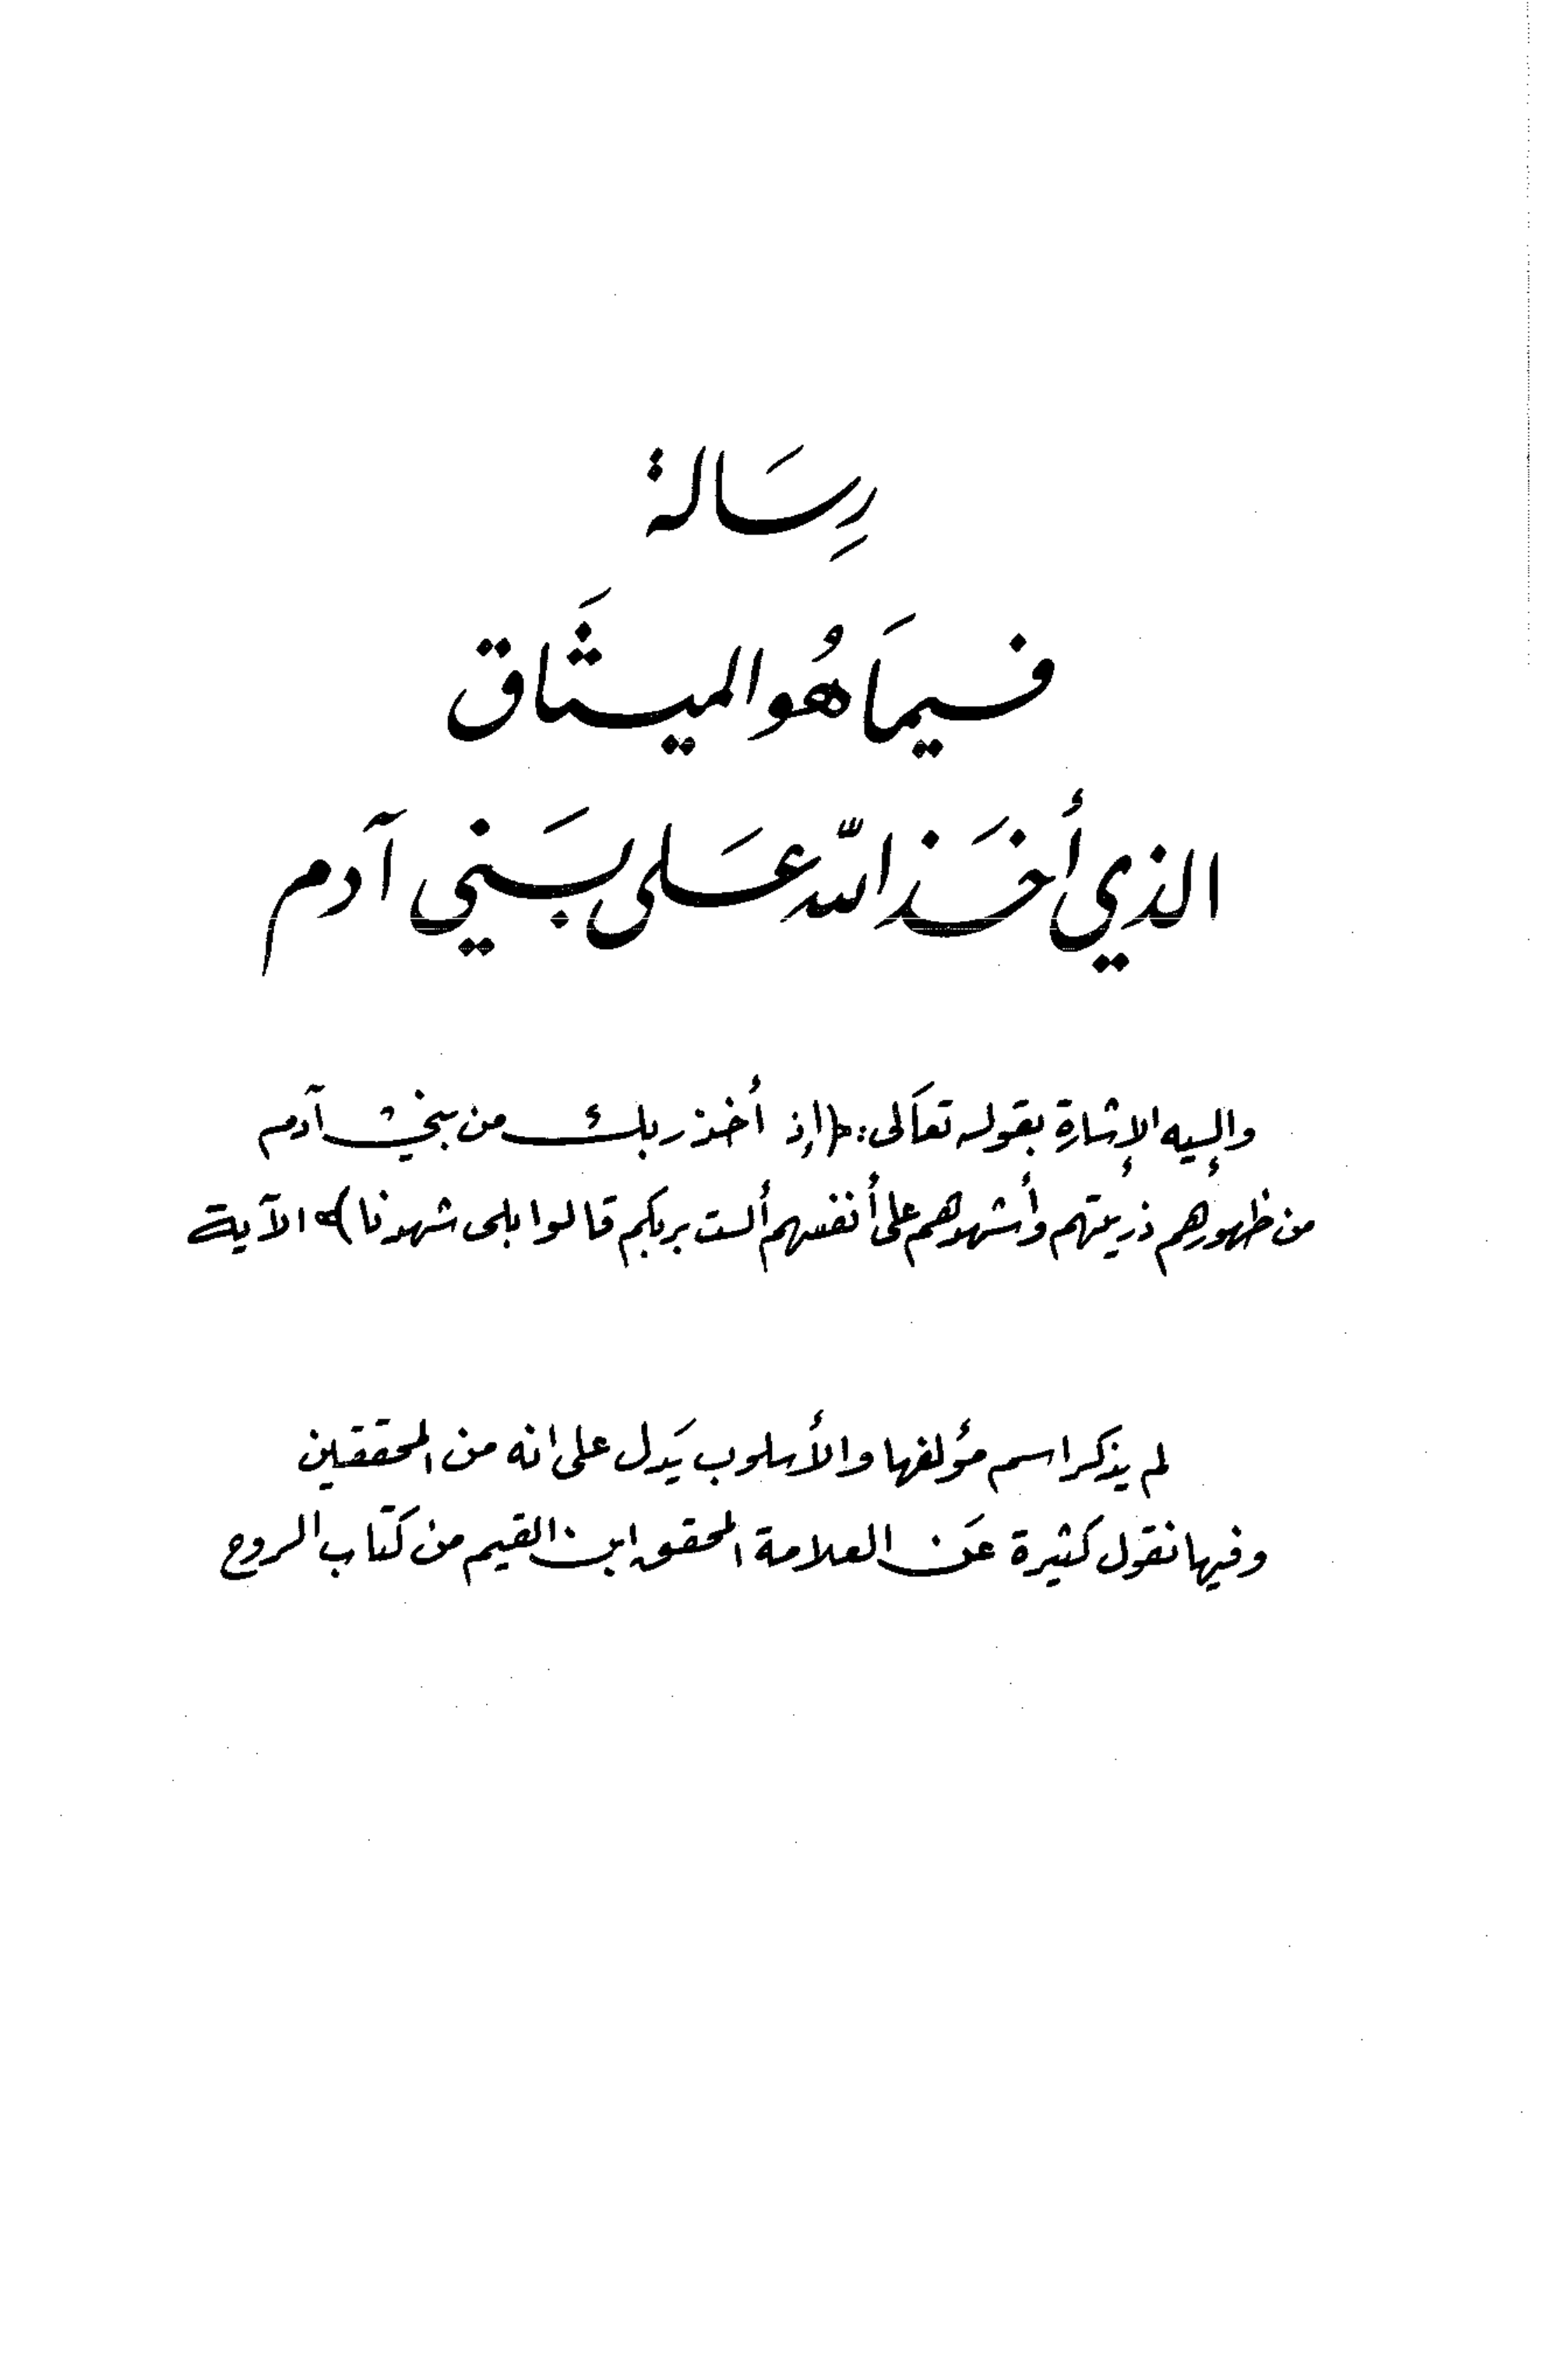 رِسَالة
فيمَا هُو الميثَاق
الذي أخَذ الله عَلى بَني آدم
وإليه الإشارة بقوله تعَالى: ﴿إذ أخذ ربك من بني آدم
من ظهورهم ذريتهم وأشهدهم على أنفسهم ألست بربكم قالوا بلى شهدنا﴾ الآية
لم يذكر اسم مؤلفها والأسلوب يَدل على انه من المحققين
وفيها نقول كثيرة عَن العلامة المحقق ابن القيم من كتاب الروح